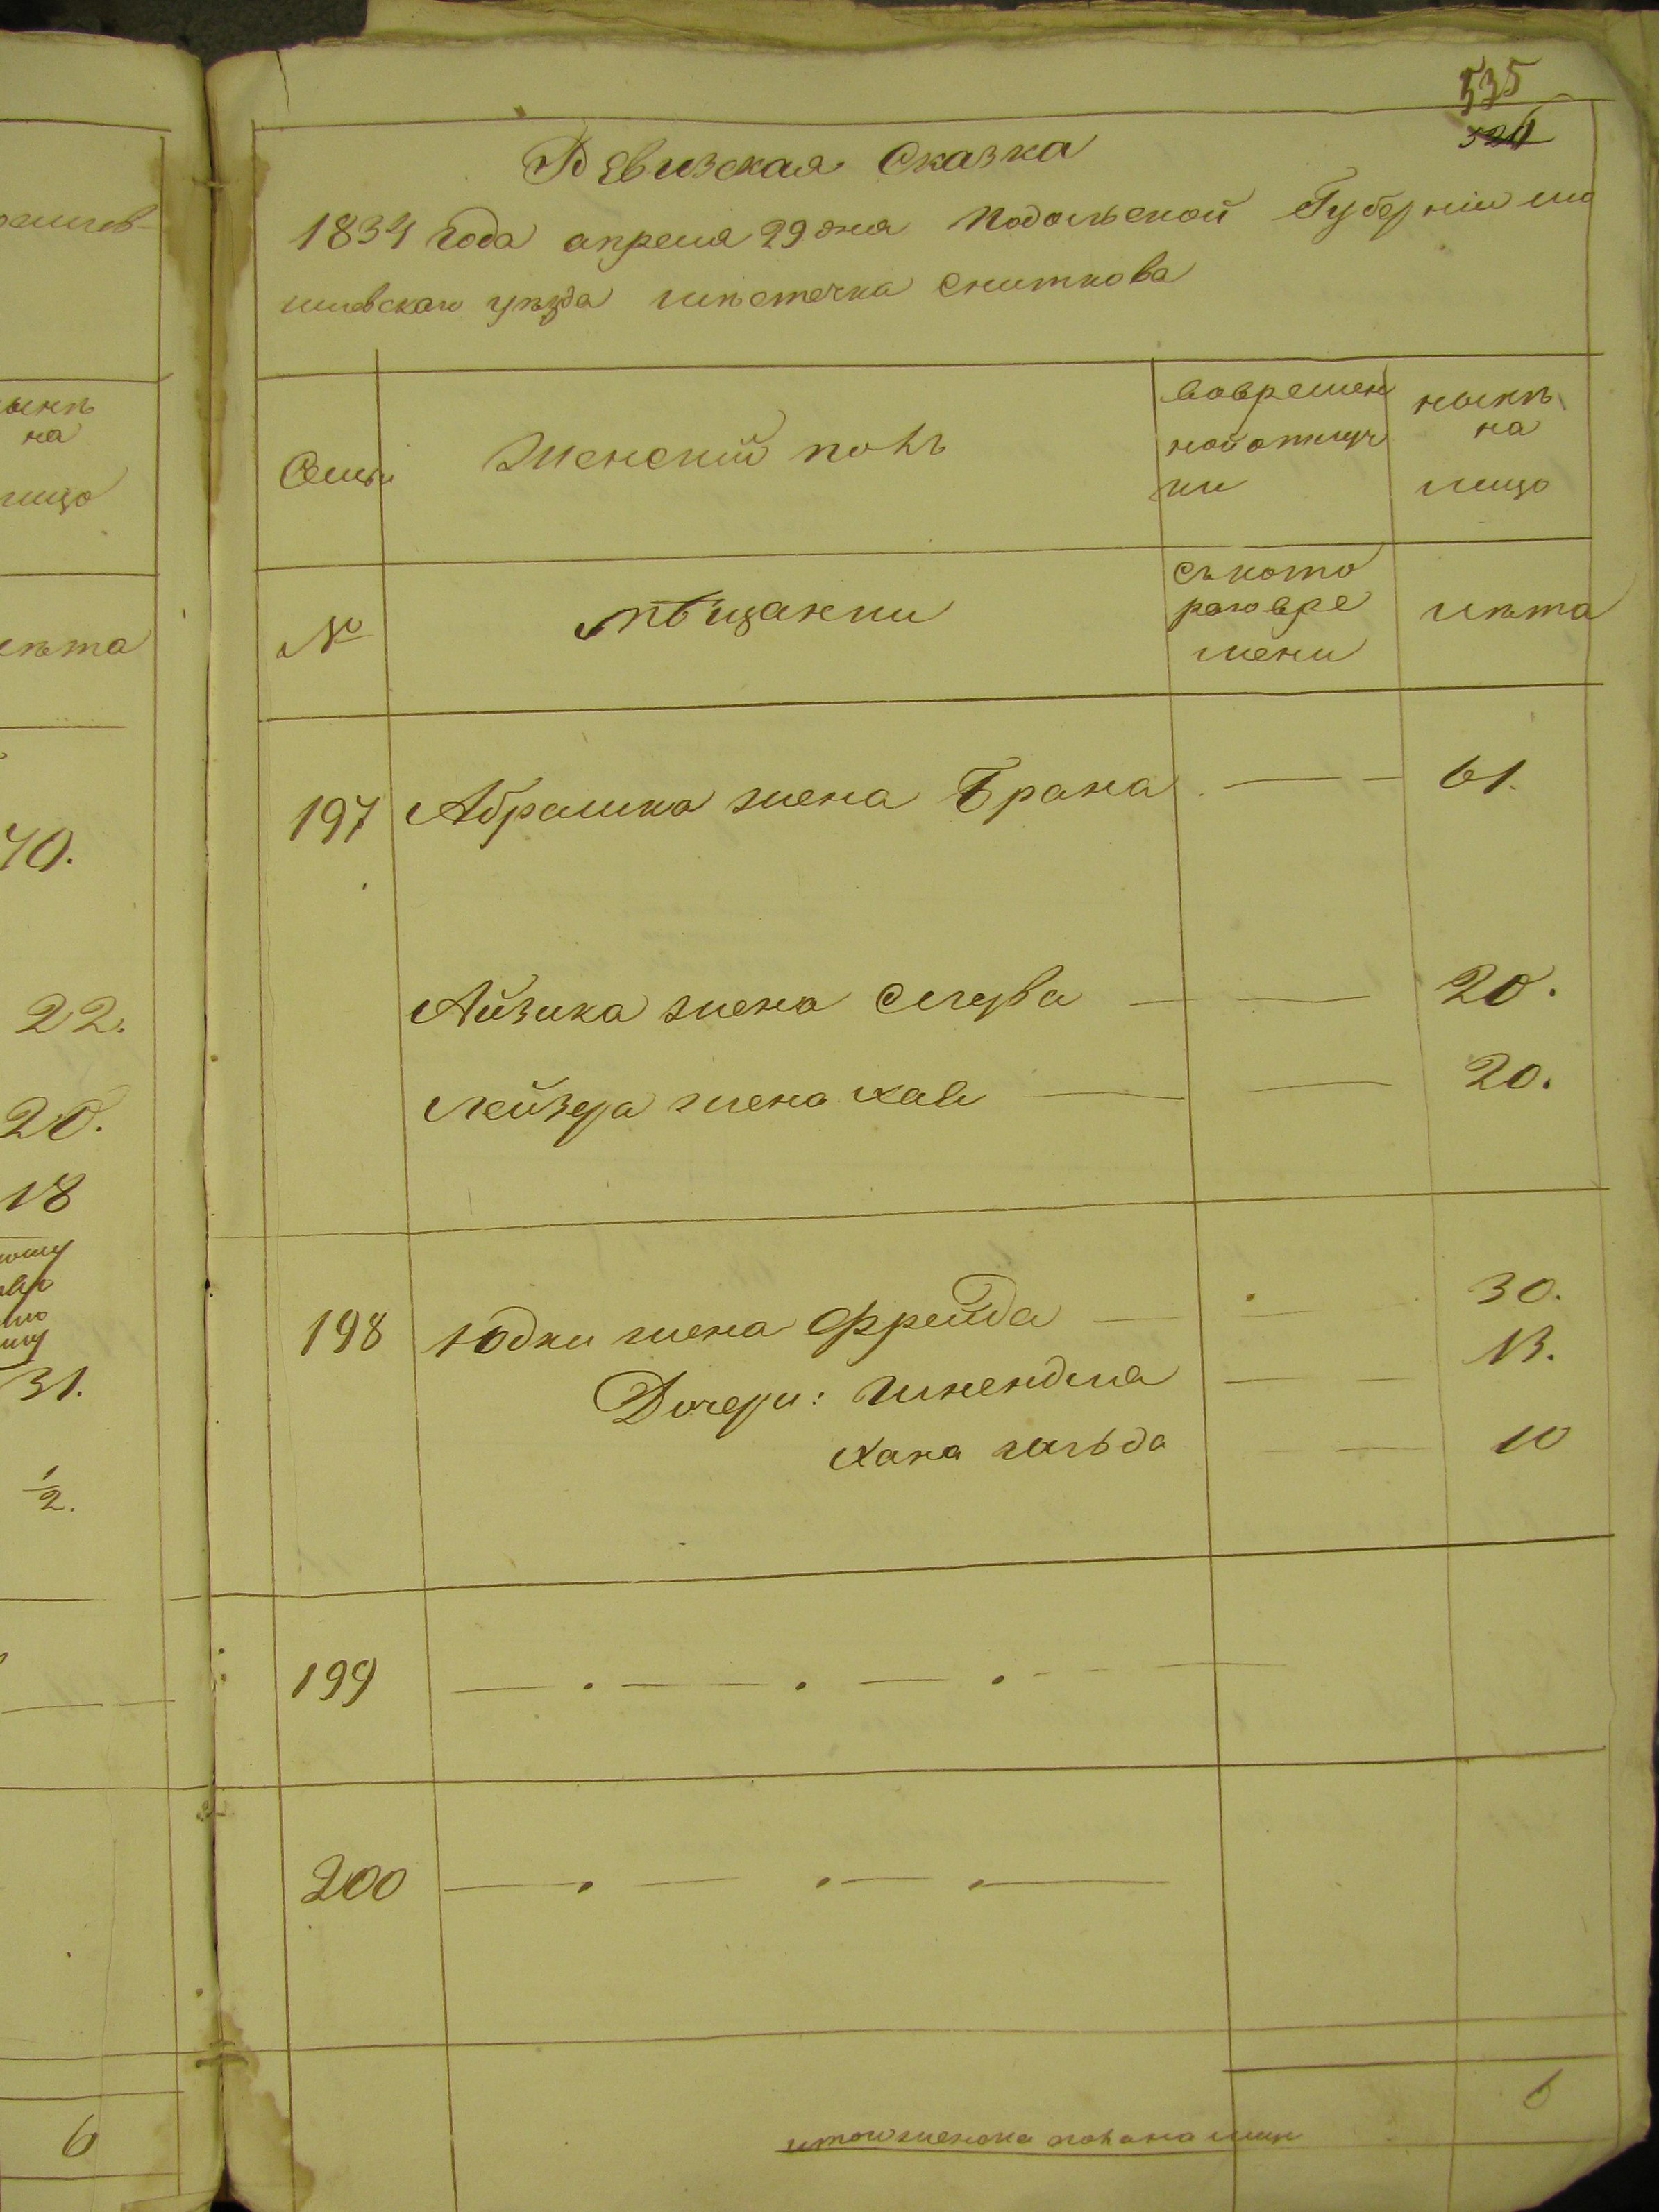 535
526
Ревизская Сказка
1834 года апреля 29 дня Подольской Губернии мо
гилевскаго уѣзда мѣстечка Сниткова
Семьи
Женский полъ
вовремен
ной отлуч
ки
нынѣ
на
лицо
№
мѣщанки
съ кото
раго вре
мени
лѣта
197 Абрашка жена Брана — — 61.
Айзика жена Слува — — 20.
Лейзера жена хая — — 20.
198 Юдки жена Фрейда — — 30.
Дочери: Шнендля — — 13.
Хана гольда — — 10
199 — . — . — . — —
200 — . — . — . —
итого женска пола на лицо 6
ынѣ
на
лицо
лѣта
40.
22.
20.
18
31.
1/2.
6